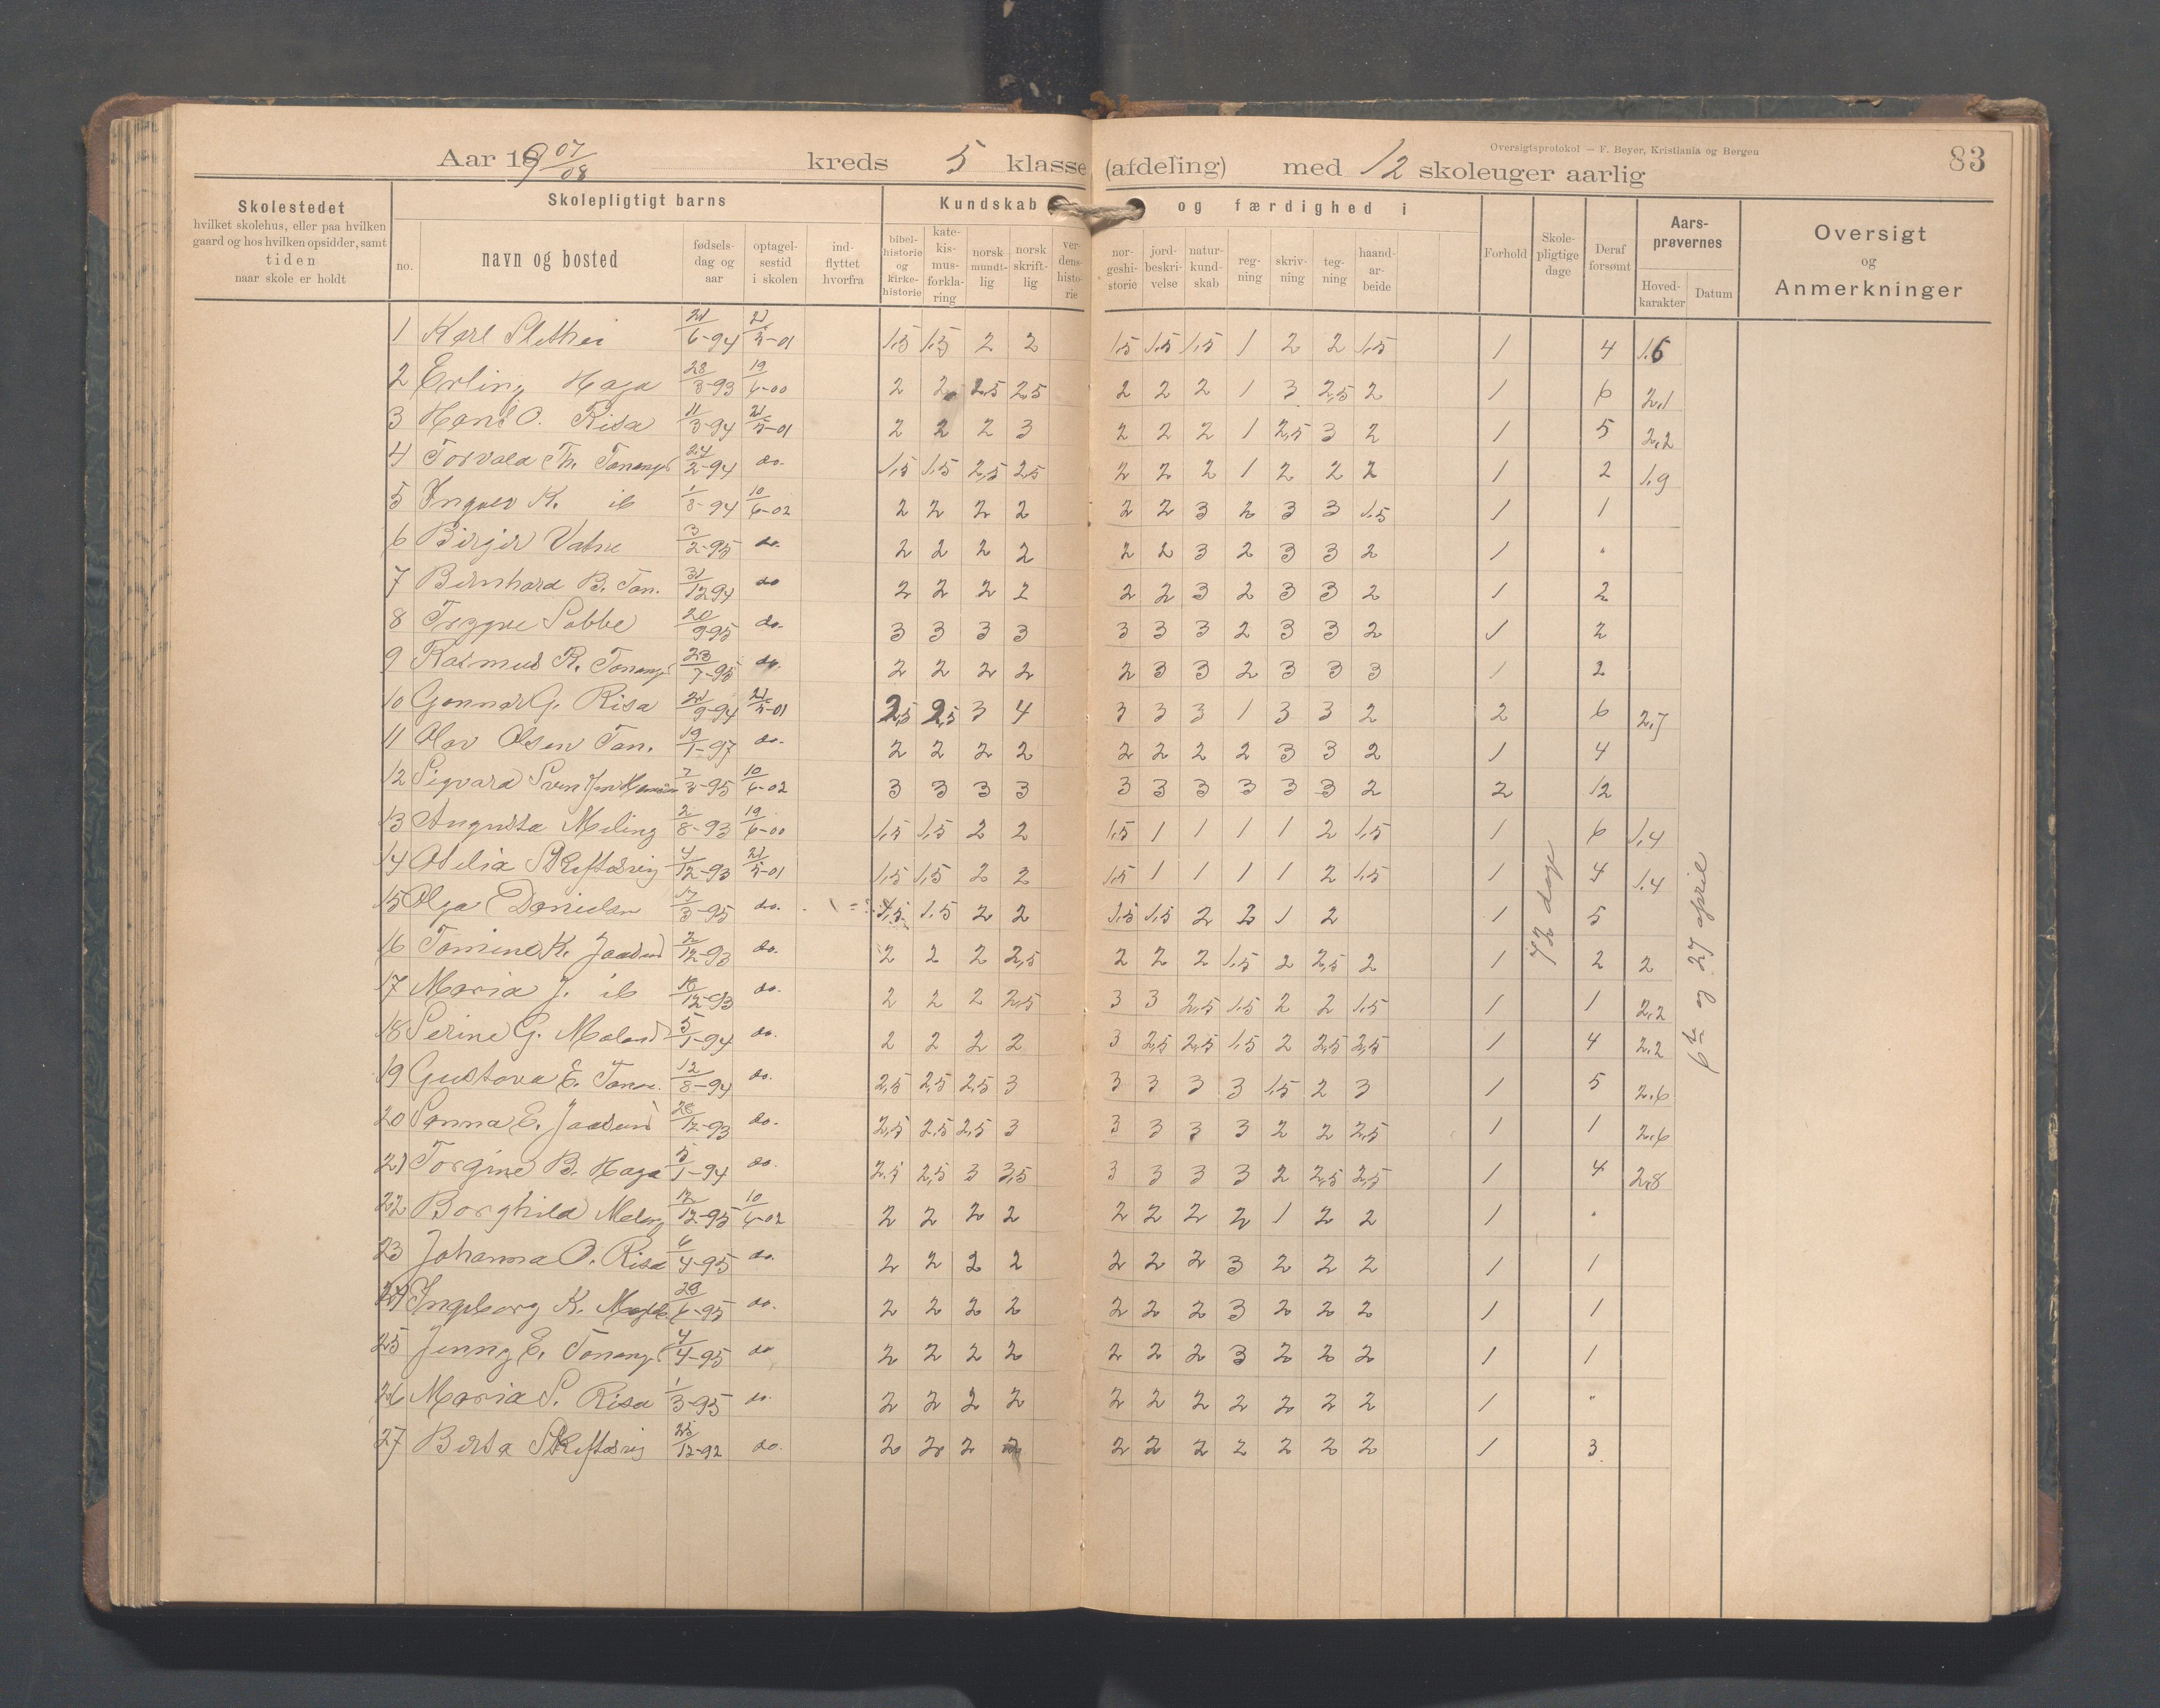 Oversigtsprotokol — F. Beyer, Kristiania og Bergen
83
Aar 1907/08 kreds 5 klasse (afdeling) med 12 skoleuger aarlig
Skolestedet
hvilket skolehus, eller paa hvilken
gaard og hos hvilken opsidder, samt
tiden
naar skole er holdt
Skolepligtigt barns
no. navn og bosted
fødsels-
dag og
aar
optagel-
sestid
i skolen
ind-
flyttet
hvorfra
Kundskab og færdighed i
bibel-
historie
og
kirke-
historie
kate-
kis-
mus-
forkla-
ring
norsk
mundt-
lig
norsk
skrift-
lig
ver-
dens-
histo-
rie
nor-
geshi-
storie
jord-
beskri-
velse
natur-
kund-
skab
reg-
ning
skriv-
ning
teg-
ning
haand-
ar-
beide
Forhold
Skole-
pligtige
dage
Deraf
forsømt
Aars-
prøvernes
Hoved-
karakter
Datum
Oversigt
og
Anmerkninger
1 Karl Slethei 21/6-94 21/5-01 1,5 1,5 2 2 1,5 1,5 1,5 1 2 2 1,5 1 4 1.6
2 Erling Haga 28/8-93 19/6-00 2 2 2,5 2,5 2 2 2 1 3 2,5 2 1 6 2,1
3 Hans O. Risa 11/3-94 21/5-01 2 2 2 3 2 2 2 1 2,5 3 2 1 5 2,2
4 Torvald Th. Tanang 24/2-94 do. 1,5 1,5 2,5 2,5 2 2 2 1 2 2 2 1 2 1,9
5 Ingvar K. ib 1/8-94 10/6-02 2 2 2 2 2 2 3 2 3 3 1,5 1 1
6 Birger Vatne 3/2-95 do. 2 2 2 2 2 2 3 2 3 3 2 1 "
7 Bernhard B. Tan. 31/12 94 do 2 2 2 2 2 2 3 2 3 3 2 1 2
8 Trygve Sabbe 20/9-95 do. 3 3 3 3 3 3 3 2 3 3 2 1 2
9 Rasmus R. Tanang 23/7-95 do. 2 2 2 2 2 3 3 2 3 3 3 1 2
10 Gunnar G. Risa 21/9-94 21/5-01 2,5 2,5 3 4 3 3 3 1 3 3 2 2 6 2,7
11 Olav Olsen Tan. 19/1-97 do. 2 2 2 2 2 2 2 2 3 3 2 1 4
12 Sigvard 7/3-95 10/6-02 3 3 3 3 3 3 3 3 3 3 2 2 12
13 Augusta Meling 2/8-93 19/6-00 1,5 1,5 2 2 1,5 1 1 1 1 2 1,5 1 6 1,4
14 Otelia Skeftesvig 4/12-93 21/5-01 1,5 1,5 2 2 1,5 1 1 1 1 2 1,5 1 4 1,4
15 Olga Danielsen 17/3-95 do. 1,5 1,5 2 2 1,5 1,5 2 2 1 2 1 5
16 Tomine K. Jaasund 2/12-93 do. 2 2 2 2,5 2 2 2 1,5 2 2,5 2 1 2 2
17 Maria J. ib 18/12-93 do. 2 2 2 2,5 3 3 2,5 1,5 2 2 1,5 1 1 2,2
18 Serine G. Maland 5/1-94 do. 2 2 2 2 3 2,5 2,5 1,5 2 2,5 2,5 1 4 2,2
19 Gustava E. Tanan. 12/8-94 do. 2,5 2,5 2,5 3 3 3 3 3 1,5 2 3 1 5 2,6
20 Sanna E. Jaasund 28/12-93 do. 2,5 2,5 2,5 3 3 3 3 3 2 2 2,5 1 1 2,6
21 Torgine B. Haga 5/1-94 do. 2,5 2,5 3 3,5 3 3 3 3 2 2,5 2,5 1 4 2,8
22 Borghild Meling 12/12-95 10/6-02 2 2 2 2 2 2 2 2 1 2 2 1 "
23 Johanna O. Risa 6/4-95 do. 2 2 2 2 2 2 2 3 2 2 2 1 1
24 Ingeborg K. 29/6-95 do. 2 2 2 2 2 2 2 3 2 2 2 1 1
25 Jenny E. Tanang 4/4-95 do 2 2 2 2 2 2 2 3 2 2 2 1 1
26 Maria S. Risa 1/3-95 do. 2 2 2 2 2 2 2 2 2 2 2 1 "
27 Berta Skeftesvig 25/12-92 do. 2 2 2 2 2 2 2 2 2 2 2 1 3
72 dage
6te og 27 april